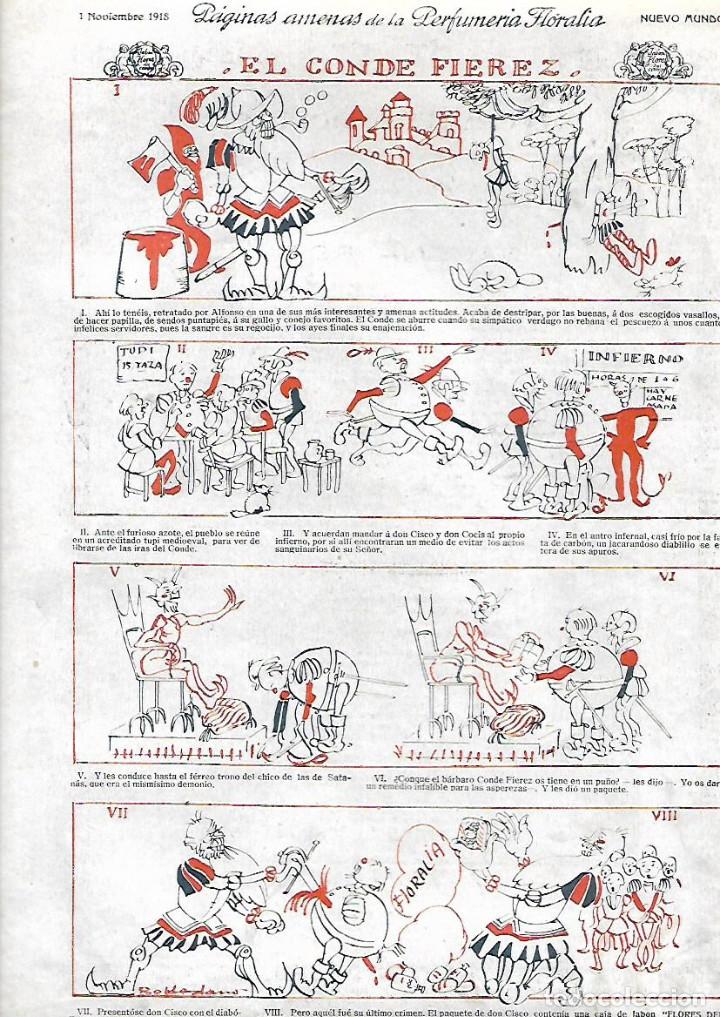 1 Noviembre 1918
Páginas amenas de la Perfumeria Floralia
NUEVO MUNDO
. EL CONDE FIEREZ .
I
I. Ahí lo tenéis, retratado por Alfonso en una de sus más interesantes y amenas actitudes. Acaba de destripar, por las buenas, á dos escogidos vasallos,
de hacer papilla, de sendos puntapiés, á su gallo y conejo favoritos. El Conde se aburre cuando su simpático verdugo no rebana el pescuezo á unos cuant
infelices servidores, pues la sangre es su regocijo, y los ayes finales su enajenación.
TUPI
15 TAZA
II
III
IV
INFIERNO
HORAS, DE 1 A 6
HAY
CARNE
ASADA
II. Ante el furioso azote, el pueblo se reúne
en un acreditado tupi medioeval, para ver de
librarse de las iras del Conde.
III. Y acuerdan mandar á don Cisco y don Cocis al propio
infierno, por si allí encontraran un medio de evitar los actos
sanguinarios de su Señor.
IV. En el antro infernal, casi frío por la fa
ta de carbón, un jacarandoso diablillo se e
tera de sus apuros.
V
VI
V. Y les conduce hasta el férreo trono del chico de las de Sata-
nás, que era el mismísimo demonio.
VI. ¿Conque el bárbaro Conde Fierez os tiene en un puño? — les dijo —. Yo os dar
un remedio infalible para las asperezas —. Y les dió un paquete.
VII
VIII
FLORALIA
Robledano
todocoleccion
VII. Presentóse don Cisco con el diabó-
VIII. Pero aquél fué su último crimen. El paquete de don Cisco contenía una caja de Jabón "FLORES DEL